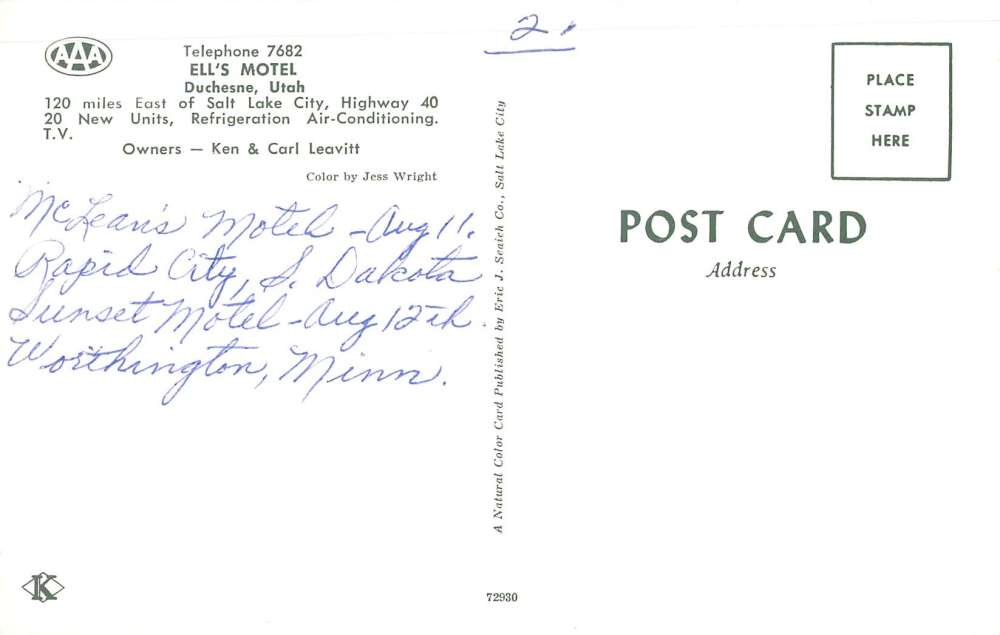 2.
AAA
Telephone 7682
ELL'S MOTEL
Duchesne, Utah
120 miles East of Salt Lake City, Highway 40
20 New Units, Refrigeration Air-Conditioning.
T.V.
Owners — Ken & Carl Leavitt
Color by Jess Wright
McLean's Motel - Aug 11.
Rapid City, S. Dakota
Sunset Motel - Aug 12th.
Worthington, Minn.
A Natural Color Card Published by Eric J. Seaich Co., Salt Lake City
PLACE
STAMP
HERE
POST CARD
Address
K
72930